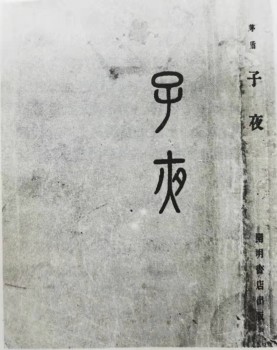 子夜
茅盾 子夜 開明書店出版